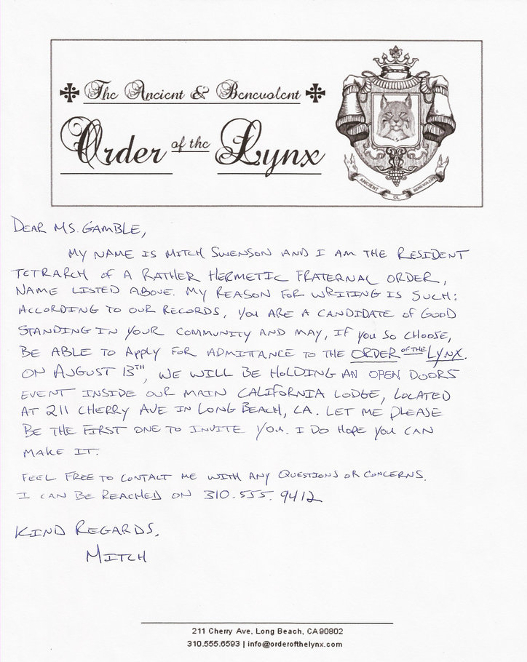 The Ancient & Benevolent
Order of the Lynx
ANCIENT & BENEVOLENT
DEAR MS. GAMBLE,
MY NAME IS MITCH SWENSON AND I AM THE RESIDENT
TETRARCH OF A RATHER HERMETIC FRATERNAL ORDER,
NAME LISTED ABOVE. MY REASON FOR WRITING IS SUCH:
ACCORDING TO OUR RECORDS, YOU ARE A CANDIDATE OF GOOD
STANDING IN YOUR COMMUNITY AND MAY, IF YOU SO CHOOSE,
BE ABLE TO APPLY FOR ADMITTANCE TO THE ORDER OF THE LYNX.
ON AUGUST 13TH, WE WILL BE HOLDING AN OPEN DOORS
EVENT INSIDE OUR MAIN CALIFORNIA LODGE, LOCATED
AT 211 CHERRY AVE IN LONG BEACH, CA. LET ME PLEASE
BE THE FIRST ONE TO INVITE YOU. I DO HOPE YOU CAN
MAKE IT.
FEEL FREE TO CONTACT ME WITH ANY QUESTIONS OR CONCERNS.
I CAN BE REACHED ON 310.555.9412
KIND REGARDS,
MITCH
211 Cherry Ave, Long Beach, CA 90802
310.555.6593 | info@orderofthelynx.com